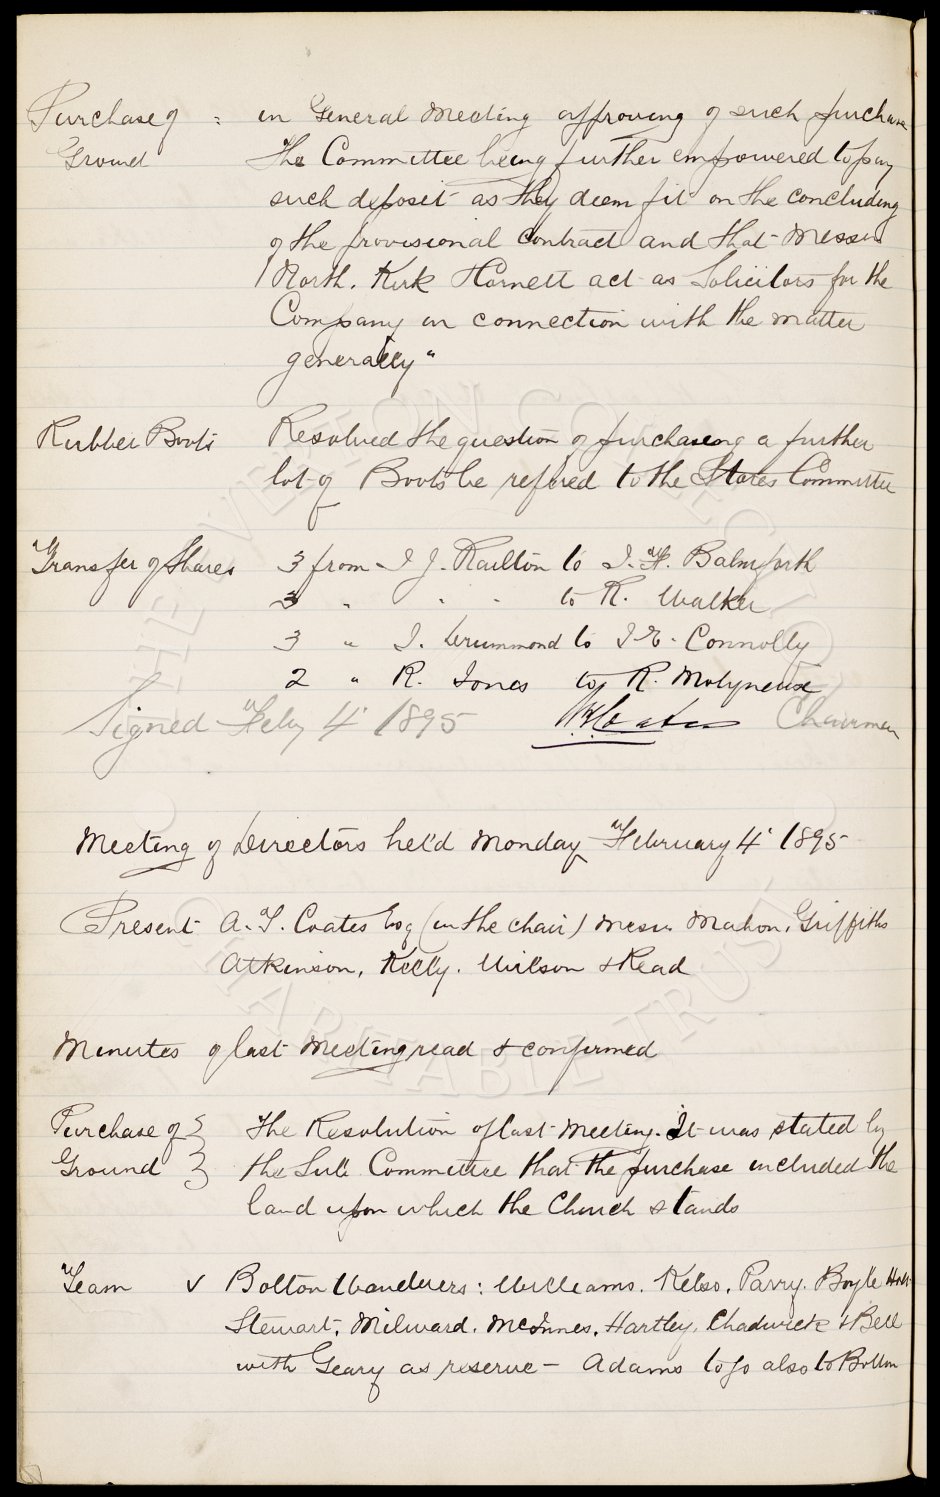 Purchase of = in General Meeting approving of such purchase
Ground the Committee being further empowered to pay
such deposit as they deem fit on the concluding
of the provisional contract and that Messrs
North, Kirk & Cornett act as Solicitors for the
Company in connection with the matter
generally"
Rubber Boots Resolved the question of purchasing a further
lot of Boots be refered to the Stores Committee
Transfer of Shares 3 from I J. Railton to J. F. Balmforth
3 " " " to R. Walker
3 " J. Drummond to J E. Connolly
2 " R. Jones to R. Molyneux
Signed Feby 4' 1895 Chairman
Meeting of Directors held Monday February 4' 1895
Present A. T. Coates Esq (in the chair) Messrs Mahon, Griffiths
Atkinson, Kelly, Wilson & Read
Minutes of last Meeting read & confirmed
Purchase of } The Resolution of last Meeting. It was stated by
Ground } the Sub Committee that the purchase included the
land upon which the Church stands
Team v Bolton Wanderers: Williams, Kelso, Parry, Boyle Holt
Stewart, Milward, McInnes, Hartley, Chadwick & Bell
with Geary as reserve – Adams to go also to Bolton
THE EVERTON COLLECTION
CHARITABLE TRUST